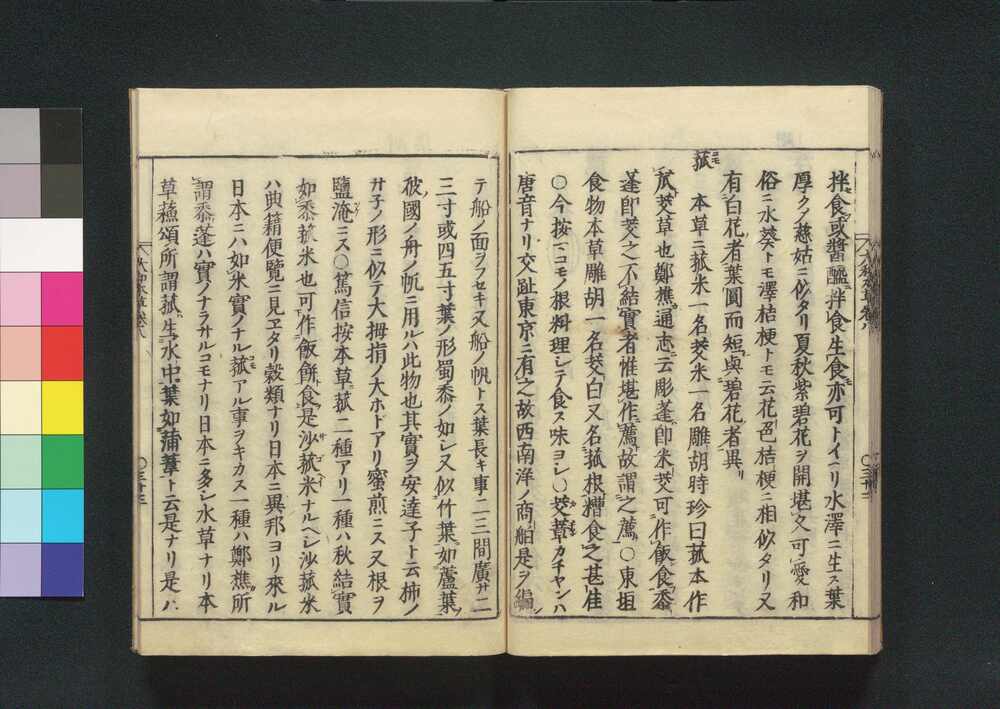 拌食或醬醯拌食生食亦可トイヘリ水澤ニ生ス葉
厚クノ慈姑ニ似タリ夏秋紫碧花ヲ開堪久可愛和
俗ニ水葵トモ澤桔梗トモ云花色桔梗ニ相似タリ又
有白花者葉圓而短與碧花者異
菰 本草ニ菰米一名茭米一名雕胡時珍曰菰本作
苽茭草也鄭樵通志云彫蓬即米茭可作飯食黍
蓬即茭之不結實者惟堪作薦故謂之薦○東垣
食物本草雕胡一名茭白又名菰根糟食之甚佳
○今按ニコモノ根料理シテ食ス味ヨシ○茭葦カチヤンハ
唐音ナリ交趾東京ニ有之故西南洋ノ商舶是ヲ編
テ船ノ面ヲフセキ又船ノ帆トス葉長キ事二三間廣サ二
三寸或四五寸葉ノ形蜀黍ノ如シ又似竹葉如蘆葉
彼國ノ舟ノ帆ニ用ルハ此物也其實ヲ安達子ト云柿ノ
サ子ノ形ニ似テ大拇指ノ大ホドアリ蜜煎ニス又根ヲ
鹽淹ニス○篤信按本草菰二種アリ一種ハ秋結實
如黍菰米也可作飯餅食是沙菰米ナルヘシ沙菰米
ハ典籍便覽ニ見ヱタリ穀類ナリ日本ニ異邦ヨリ來ル
日本ニハ如米實ノナル菰アル事ヲキカス一種ハ鄭樵所
謂黍蓬ハ實ノナラサルコモナリ日本ニ多シ水草ナリ本
草蘓頌所謂菰生水中葉如蒲葦ト云是ナリ是ハ
大和本草卷八
○三十三